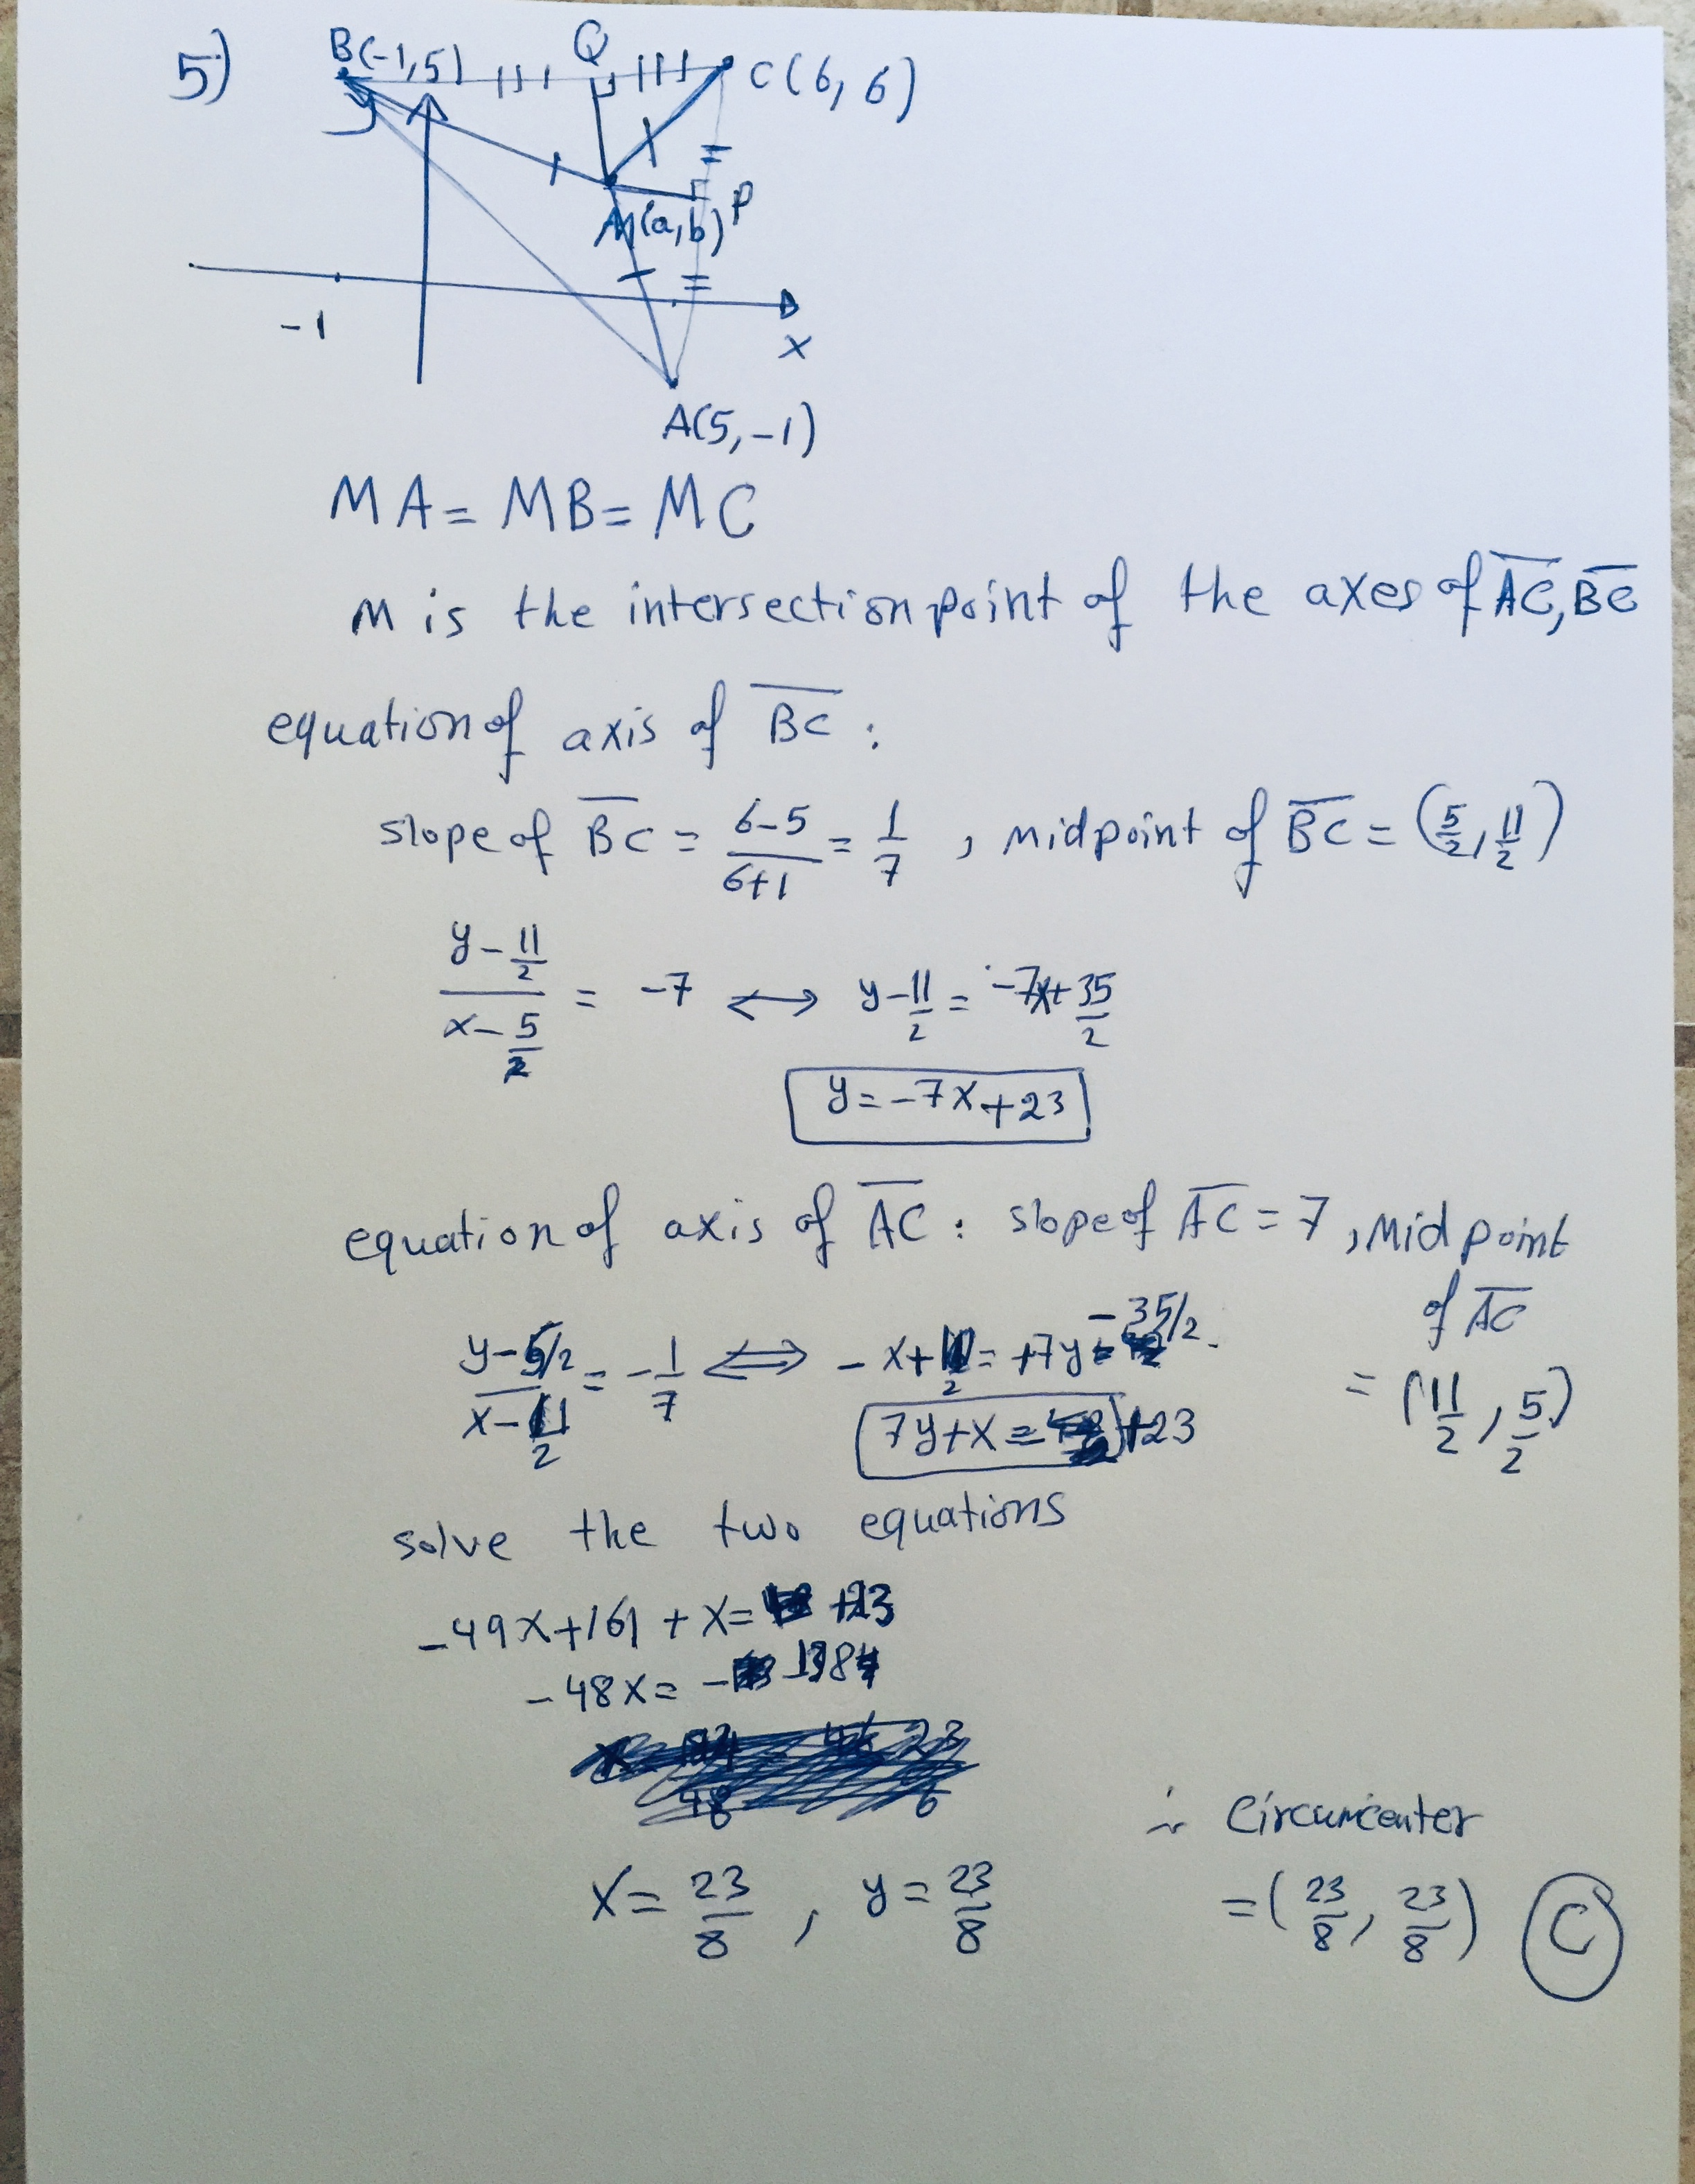 5)
B(-1,5)
Q
C(6,6)
y
M(a,b)
P
-1
x
A(5,-1)
MA = MB = MC
M is the intersection point of the axes of \overline{AC}, \overline{BC}
equation of axis of \overline{BC} :
slope of \overline{BC} = \frac{6-5}{6+1} = \frac{1}{7} , midpoint of \overline{BC} = (\frac{5}{2}, \frac{11}{2})
\frac{y-\frac{11}{2}}{x-\frac{5}{2}} = -7 ↔ y-\frac{11}{2} = -7x+\frac{35}{2}
y=-7x+23
equation of axis of \overline{AC} : slope of \overline{AC} = 7 , Midpoint
of \overline{AC}
= (\frac{11}{2}, \frac{5}{2})
\frac{y-5/2}{x-\frac{11}{2}} = -\frac{1}{7} ⟺ -x+\frac{11}{2} = +7y-35/2
7y+x = +23
solve the two equations
-49x+161+x= +23
-48x=
x= \frac{23}{8} , y= \frac{23}{8}
∴ Circumcenter
= (\frac{23}{8}, \frac{23}{8}) C